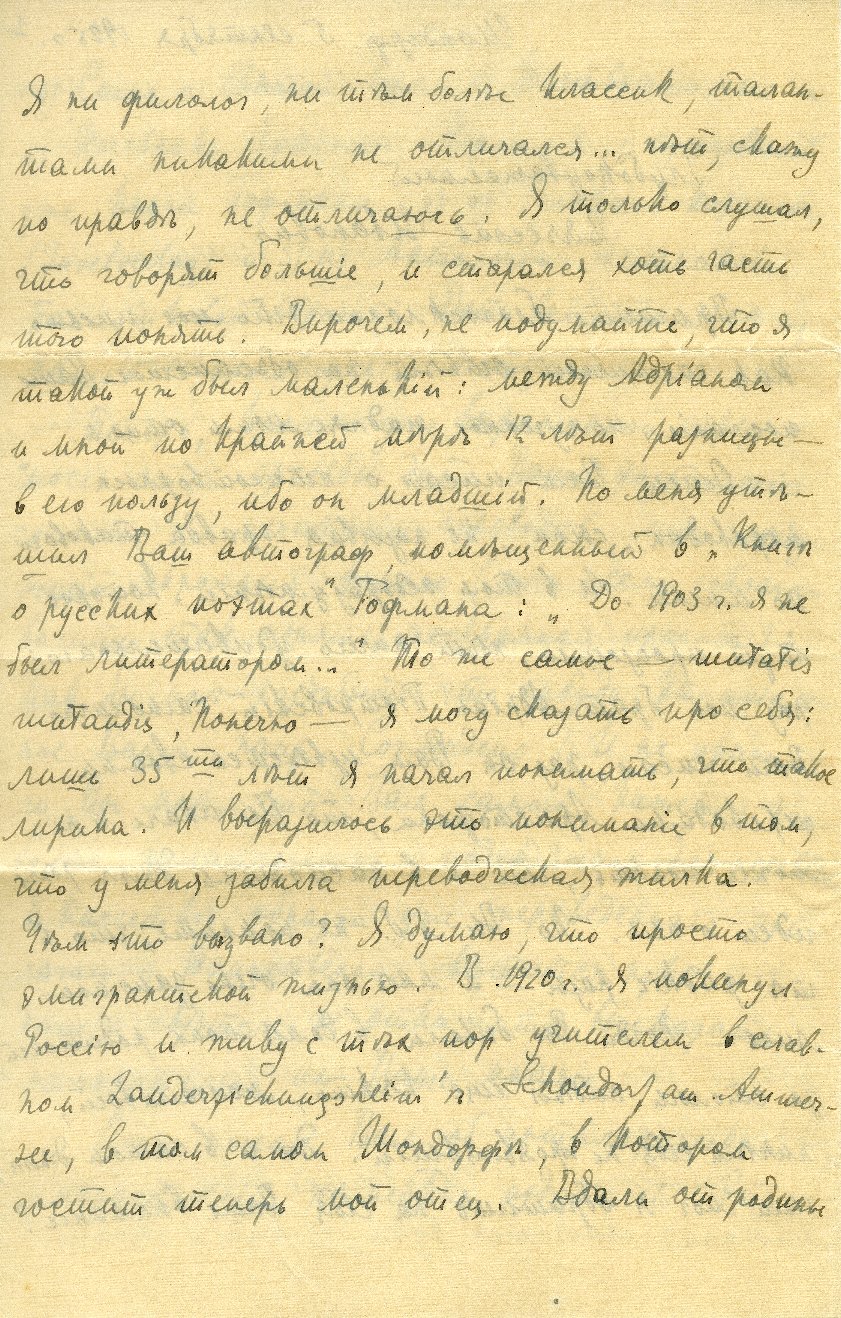 Я ни филолог, ни тѣм болѣе классик, талан-
тами никакими не отличался... нѣт, скажу
по правдѣ, не отличаюсь. Я только слушал,
что говорят большіе, и старался хоть часть
того понять. Впрочем, не подумайте, что я
такой уж был маленькій: между Адріаном
и мной по крайней мѣрѣ 12 лѣт разницы —
в его пользу, ибо он младшій. Но меня утѣ-
шил Ваш автограф, помѣщенный в „Книгѣ
о русских поэтах" Гофмана: „До 1903 г. я не
был литератором..." То же самое — mutatis
mutandis, конечно — я могу сказать про себя:
лишь 35ти лѣт я начал понимать, что такое
лирика. И выразилось это пониманіе в том,
что у меня забила переводческая жилка.
Чѣм это вызвано? Я думаю, что просто
эмигрантской жизнью. В 1920 г. я покинул
Россію и живу с тѣх пор учителем в слав-
ном Landerziehungsheim'ѣ Schondorf am Ammer-
see, в том самом Шондорфѣ, в котором
гостит теперь мой отец. Вдали от родины